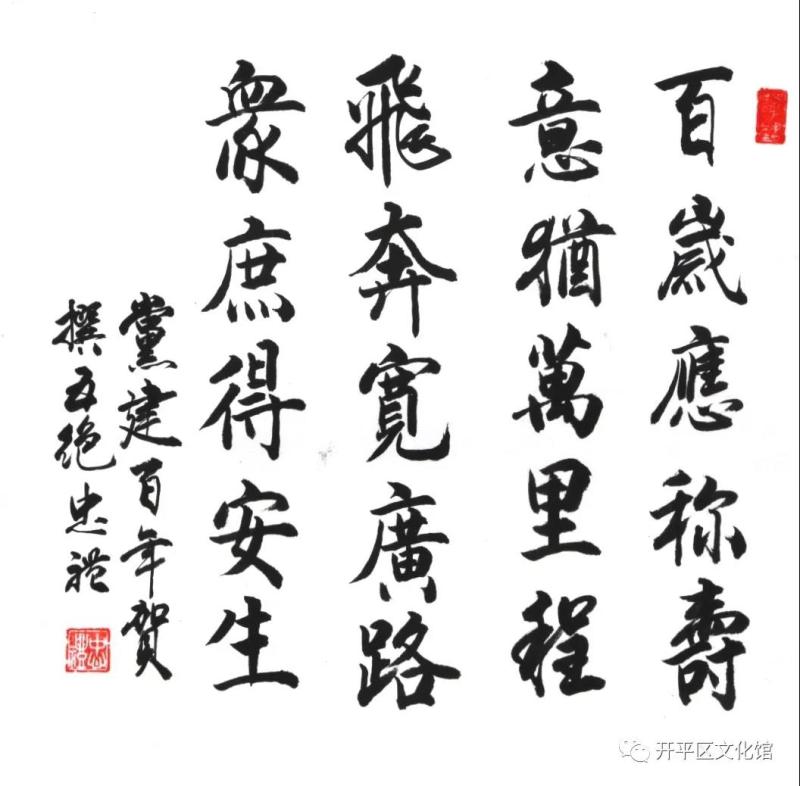 百歲應称壽
意猶萬里程
飛奔寬廣路
衆庶得安生
黨建百年賀
撰五绝忠礼
忠禮
开平区文化馆